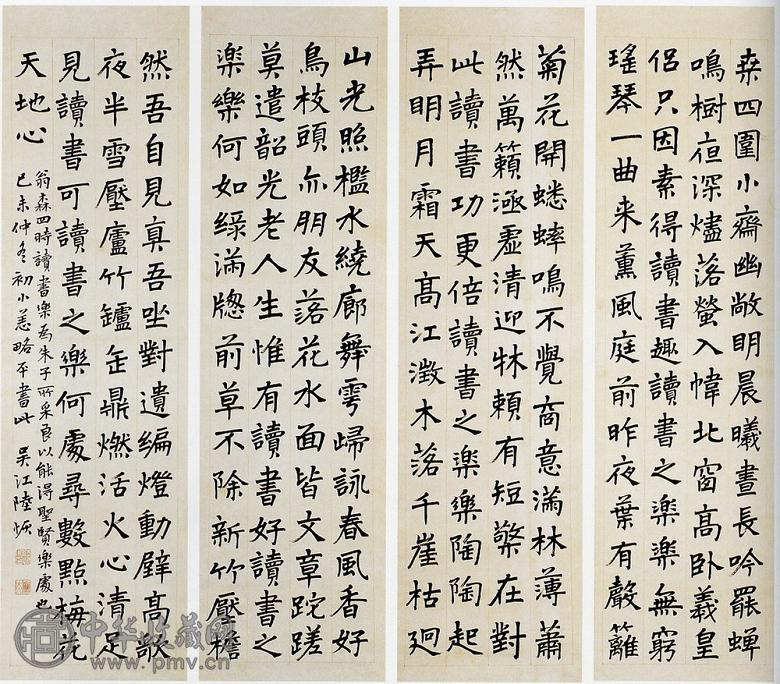 桑四圍小齋幽敞明晨曦晝長吟罷蟬
鳴樹夜深燼落螢入幃北窗高臥羲皇
侶只因素得讀書趣讀書之樂樂無窮
瑤琴一曲来薰風庭前昨夜葉有聲籬
菊花開蟋蟀鳴不覺商意滿林薄蕭
然萬籟涵虛清迎牀賴有短檠在對
此讀書功更倍讀書之樂樂陶陶起
弄明月霜天高江澂木落千崖枯迥
山光照檻水繞廊舞雩歸詠春風香好
鳥枝頭亦朋友落花水面皆文章跎蹉
莫遣韶光老人生惟有讀書好讀書之
樂樂何如綠滿牎前草不除新竹壓檐
然吾自見真吾坐對遺編燈動壁高歌
夜半雪壓廬竹罏缶鼎燃活火心清足
見讀書可讀書之樂何處尋數點梅花
天地心
翁森四時讀書樂為朱子所采良以能得聖賢樂處也
己未仲冬初小恙略平書此 吳江陸恢
中华收藏网
www.pmv.cn